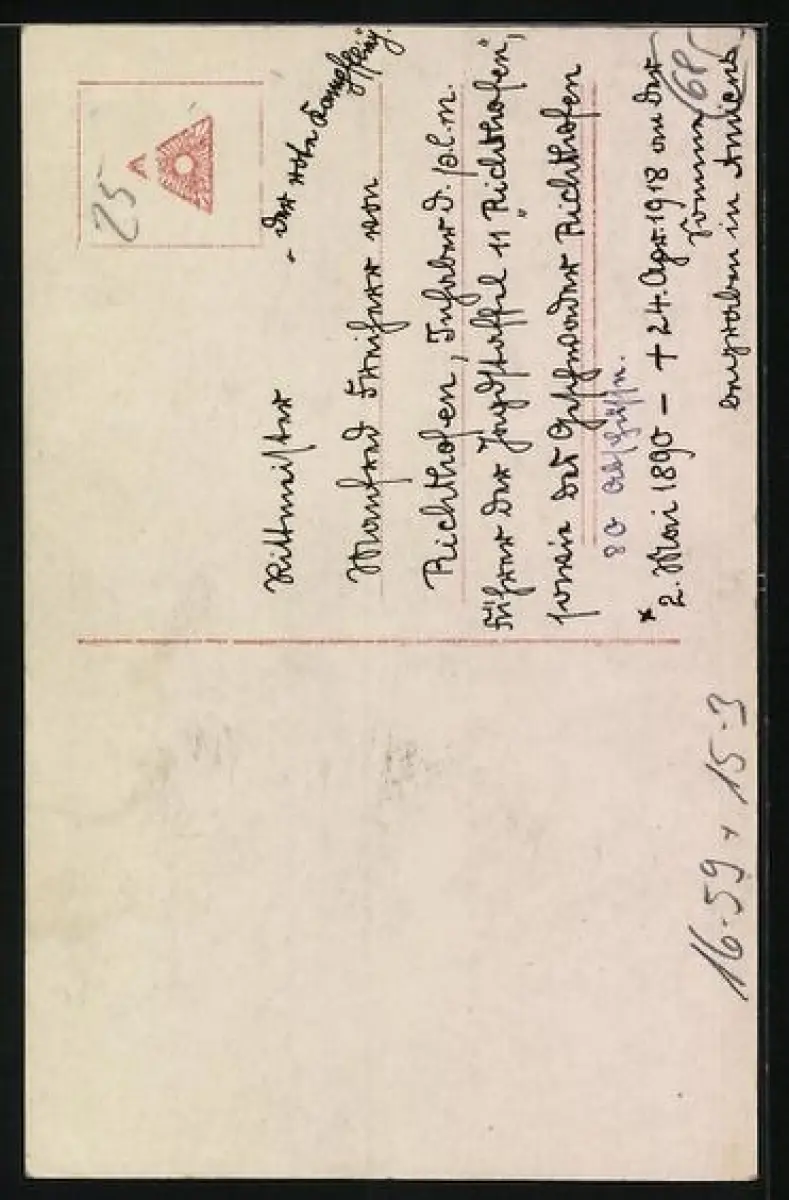 25
Rittmeister
- der rote Kampfflieg."
Manfred Freiherr von
Richthofen, Inhaber d. p.l.m.
Führer der Jagdstaffel 11 „Richthofen",
sowie des Geschwader Richthofen
80 Abschüsse.
* 2. Mai 1890 – † 24. Apr. 1918 an der
Somme
begraben in Amiens.
685
16·59 + 15·3